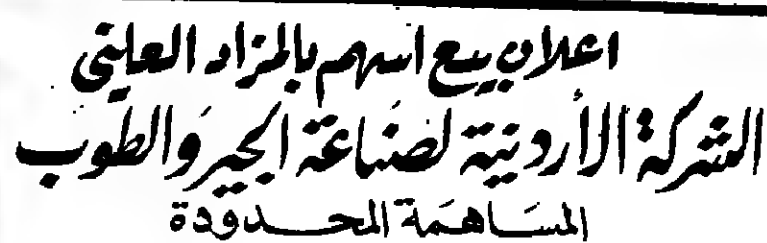 اعلان بيع اسهم بالمزاد العلني
الشركة الأردنية لصناعة الجير والطوب
المساهمة المحدودة